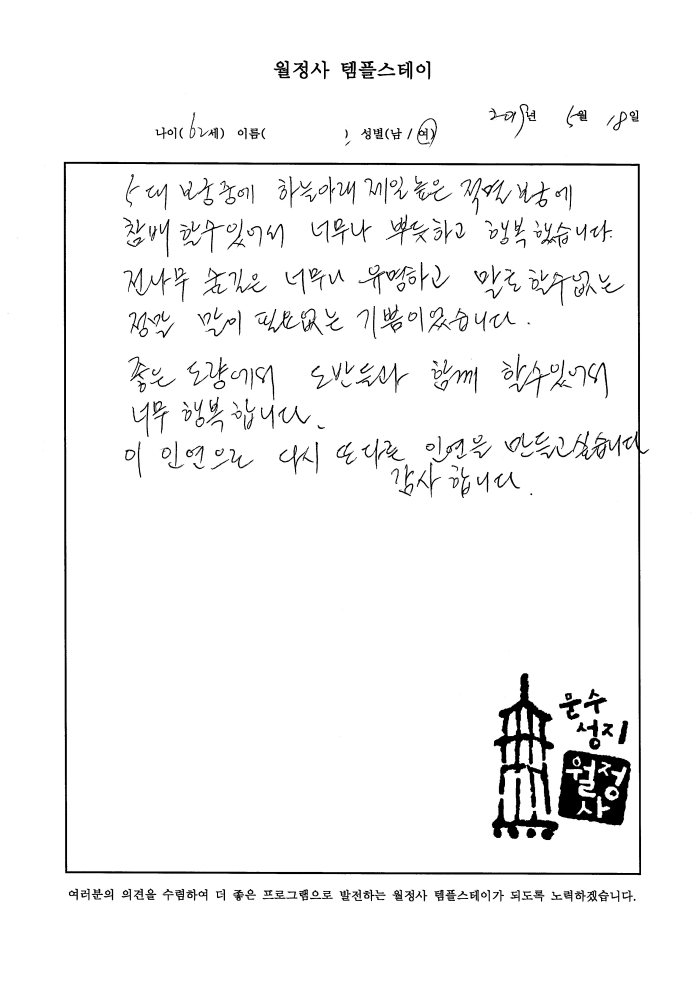 월정사 템플스테이
2019년 5월 18일
나이(62세) 이름( ), 성별(남 / 여)
5대 보궁중에 하늘아래 제일높은 적멸보궁에
참배 할수있어서 너무나 뿌듯하고 행복했습니다.
전나무 숲길은 너무나 유명하고 말로 할수없는
정말 말이 필요없는 기쁨이었습니다.
좋은 도량에서 도반들과 함께 할수있어서
너무 행복합니다.
이 인연으로 다시 또다른 인연을 만들고싶습니다
감사합니다.
문수
성지
월정
사
여러분의 의견을 수렴하여 더 좋은 프로그램으로 발전하는 월정사 템플스테이가 되도록 노력하겠습니다.